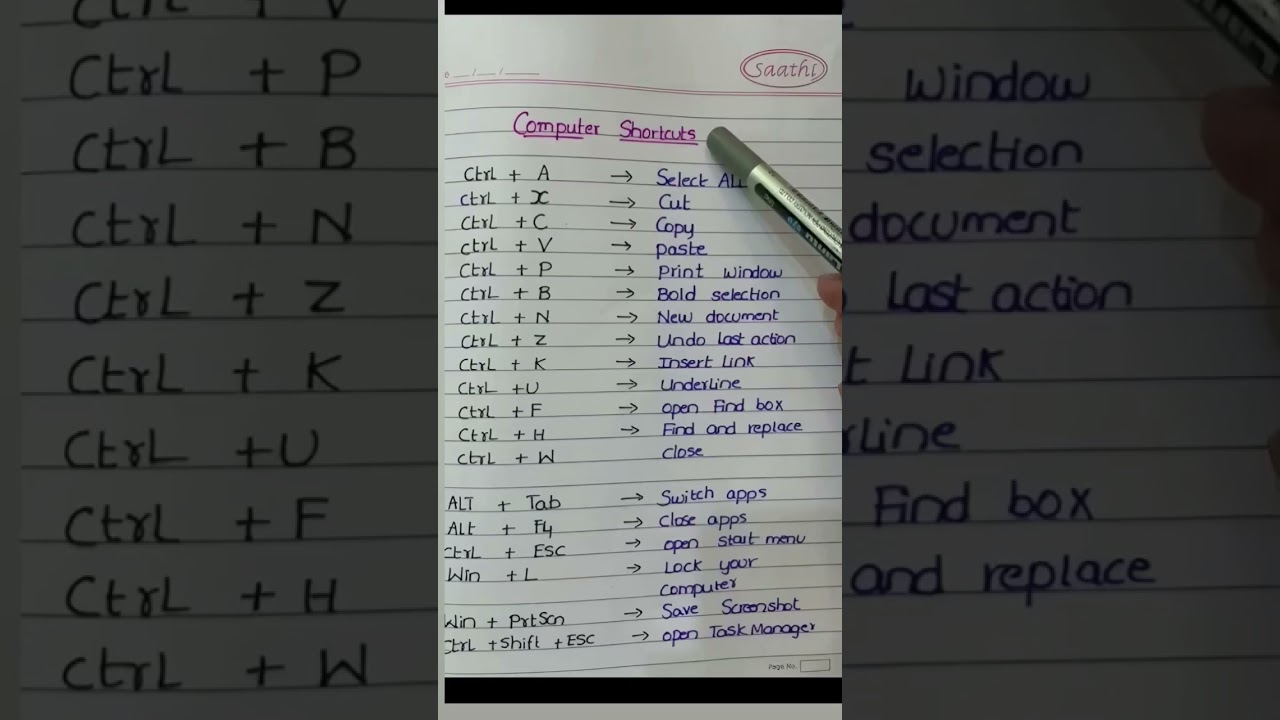 Saathi
Computer Shortcuts
Ctrl + A → Select ALL
Ctrl + X → Cut
Ctrl + C → Copy
Ctrl + V → paste
Ctrl + P → Print window
Ctrl + B → Bold selection
Ctrl + N → New document
Ctrl + Z → Undo Last action
Ctrl + K → Insert Link
Ctrl + U → Underline
Ctrl + F → open Find box
Ctrl + H → Find and replace
Ctrl + W close
ALT + Tab → Switch apps
Alt + F4 → Close apps
Ctrl + ESC → open start menu
Win + L → Lock your
computer
Win + PrtScn → Save Screenshot
Ctrl + Shift + ESC → open Task Manager
Page No.
Ctrl + P
Ctrl + B
Ctrl + N
Ctrl + Z
Ctrl + K
Ctrl + U
Ctrl + F
Ctrl + H
Ctrl + W
window
selection
document
Last action
Link
Find box
and replace